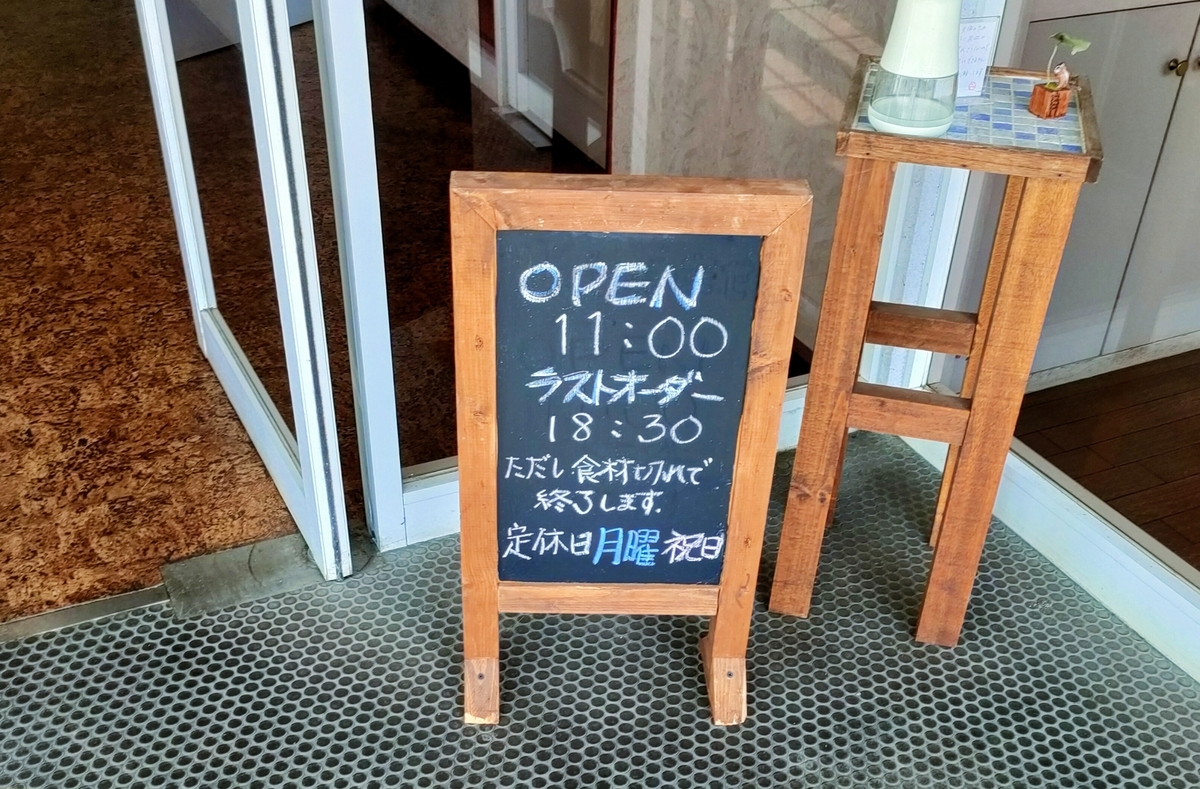 OPEN
11:00
ラストオーダー
18:30
ただし食材切れで
終了します.
定休日月曜祝日